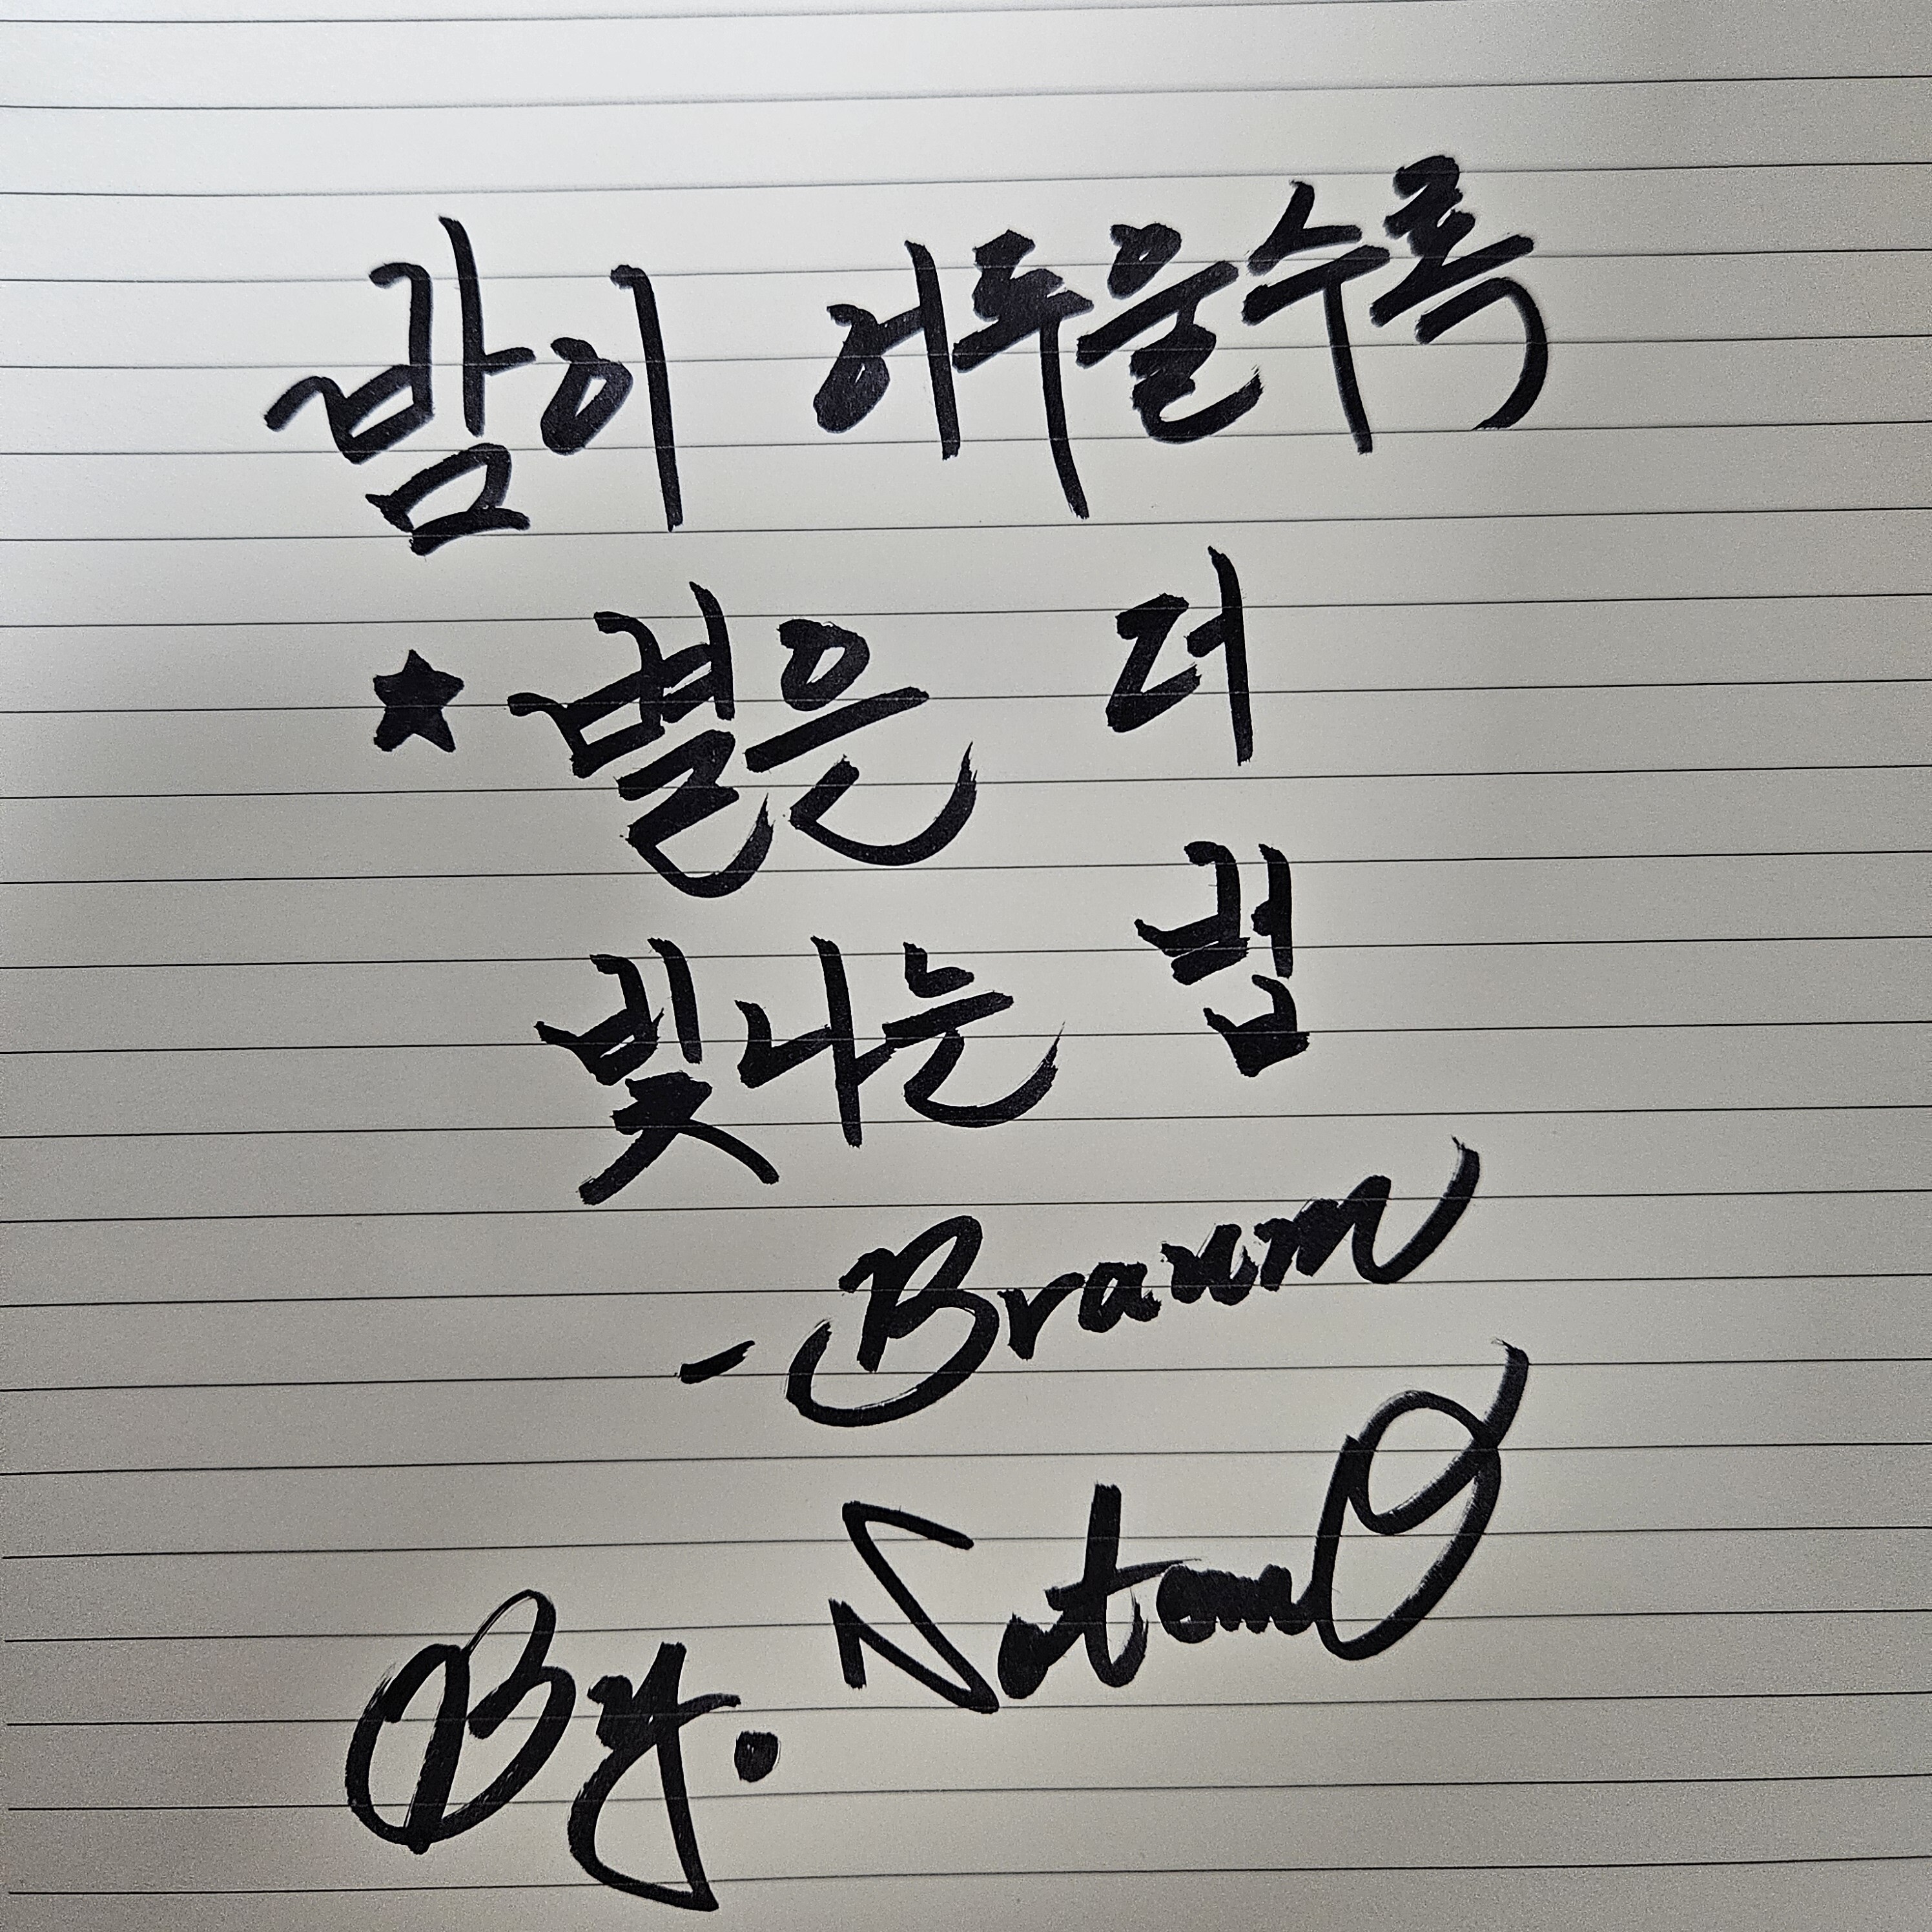 밤이 어두울수록
★ 별은 더
빛나는 법
- Braum
By.